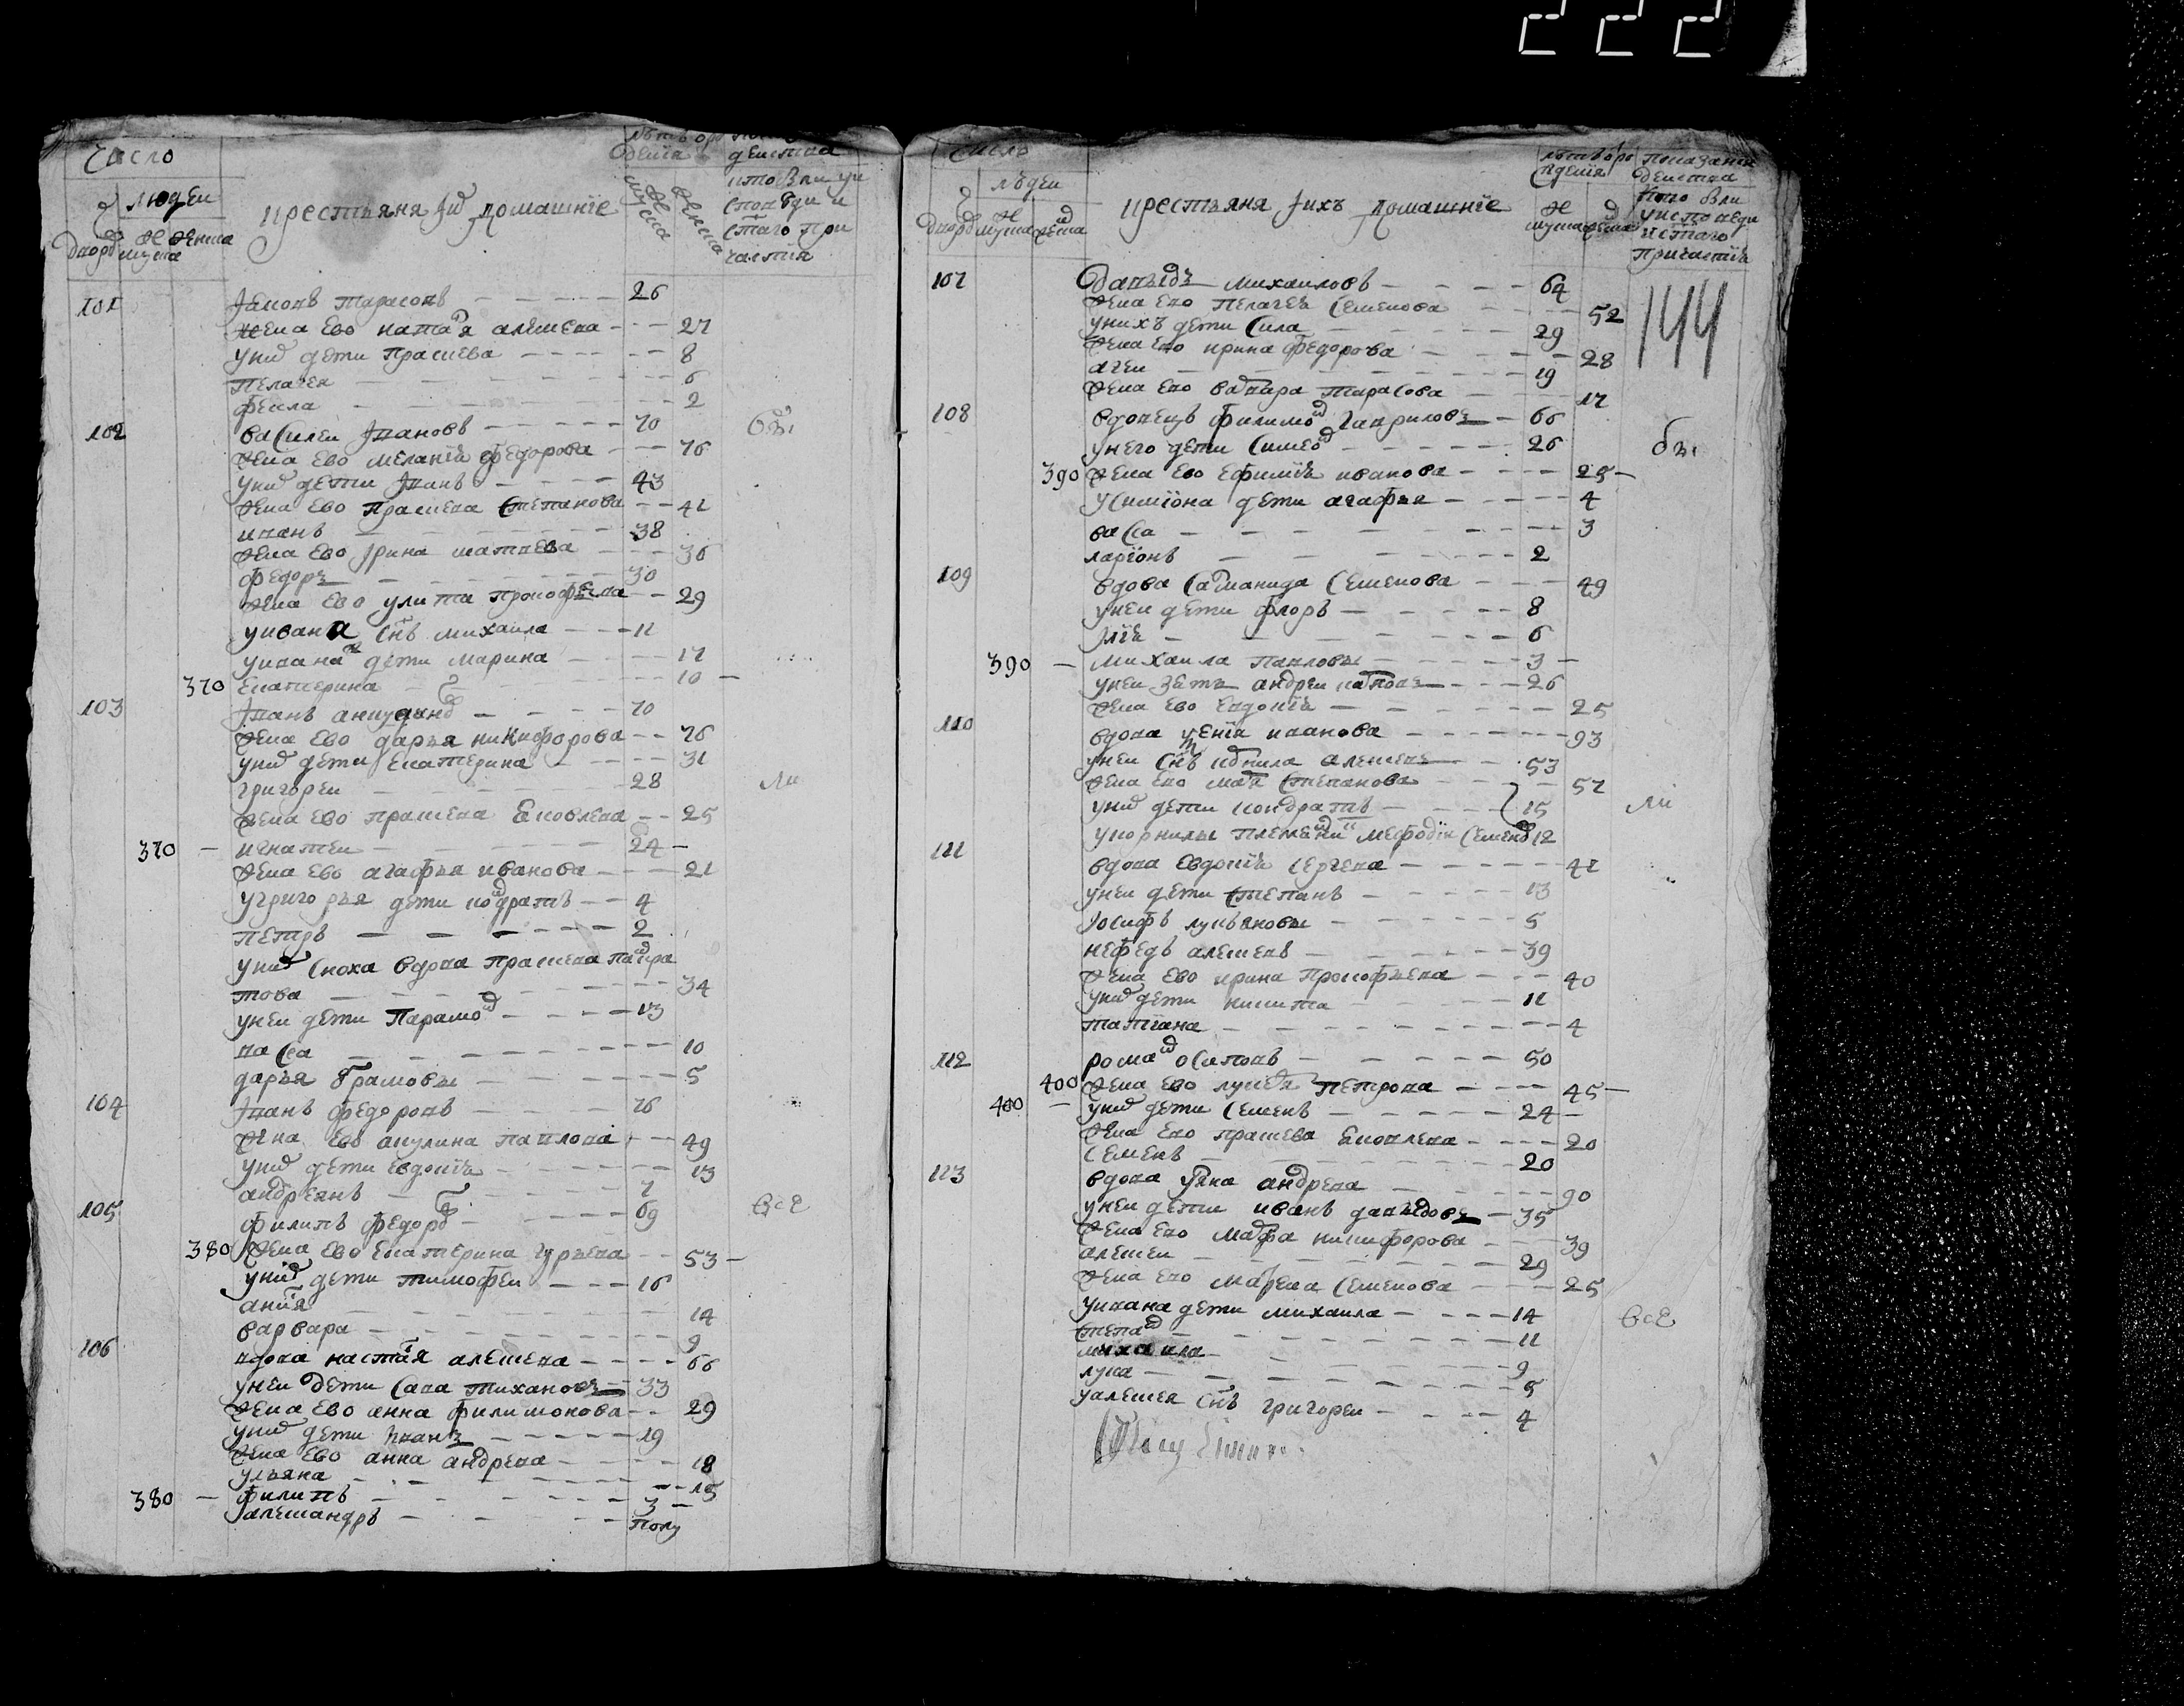 222
Число
людеи
дворовъ мужеска женска
крестьяня ихъ домашние
мужеска женска
101 Iаковъ тарасовъ 26
жена ево настасья алексеева 27
у них дети прасковья 8
пелагея 6
фекла 2
102 василеи Iвановъ 70 бы
жена ево мелания федорова 76
у них дети Iванъ 43
жена ево прасковья степанова 41
иванъ 38
жена ево Iрина матвеева 36
федоръ 30
жена ево улита прокофьева 29
у ивана снъ михаила 11
у ивана дети марина 17
370 Екатерина 10
103 Iванъ 70
жена ево дарья никифорова 76
у них дети Екатерина 31
григореи 28 ли
жена ево прасковья Яковлева 25
370 игнатеи 24
жена ево агафья иванова 21
у григорья дети кондратъ 4
петръ 2
у них сноха вдова прасковья панкра
това 34
у неи дети Парамон 13
васса 10
дарья 5
104 Iванъ федоровъ 76
жена ево акулина павлова 49
у них дети евдокия 13
андреянъ 7
105 филипъ федоровъ 69 все
380 жена ево Екатерина гурьева 53
у них дети тимофеи 16
14
варвара 9
106 вдова настасья алексеева 66
у неи дети сава тихановъ 33
жена ево анна филимонова 29
у них дети иванъ 19
жена ево анна андреева 18
ульяна 15
380 филипъ 3
александръ полу
Число
людеи
дворовъ мужеска женска
крестьяня Iихъ домашние
мужеска женска
144
107 Давыдъ михаиловъ 64
жена ево пелагея семенова 52
у нихъ дети сила 29
жена ево ирина федорова 28
агеи 19
жена ево варвара тарасова 17
108 вдовецъ филимон гавриловъ 66
у него дети симеон 26 бы
390 жена ево ефимия иванова 25
у симиона дети агафья 4
васса 3
ларионъ 2
109 вдова саламанида семенова 49
у неи дети флоръ 8
илья 6
390 михаила павловы 3
у неи зять андреи 26
жена ево евдокия 25
110 вдова ксения иванова 93
у неи снъ корнила алексеевъ 53
жена ево марфа степанова 57
у них дети кондратъ 15 ли
у корнилы племянник мефодии семенов 12
111 вдова евдокия сергеева 41
у неи дети степанъ 13
Iосифъ лукьяновы 5
нефедъ алексеевъ 39
жена ево ирина прокофьева 40
у них дети никита 11
татиана 4
112 роман осиповъ 50
400 жена ево лукерья петрова 45
400 у них дети семенъ 24
жена ево прасковья Яковлева 20
семенъ 20
113 вдова андреева 90
у неи дети иванъ давыдовъ 35
жена ево марфа никифорова 39
алексеи 29
жена ево марфа семенова 25
у ивана дети михаила 14 все
степан 11
михаила 9
лука 5
у алексея снъ григореи 4